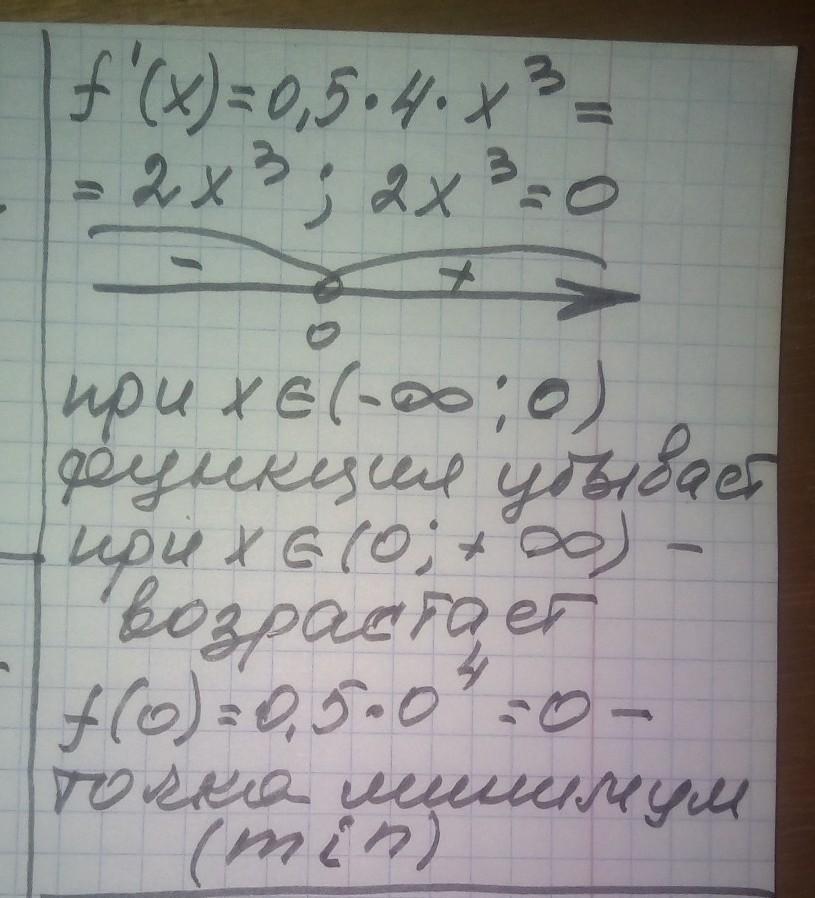 f'(x)=0,5·4·x³=
=2x³; 2x³=0
- +
0
при x∈(-∞;0)
функция убывает
при x∈(0;+∞) -
возрастает
f(0)=0,5·0⁴=0 -
точка минимум
(min)